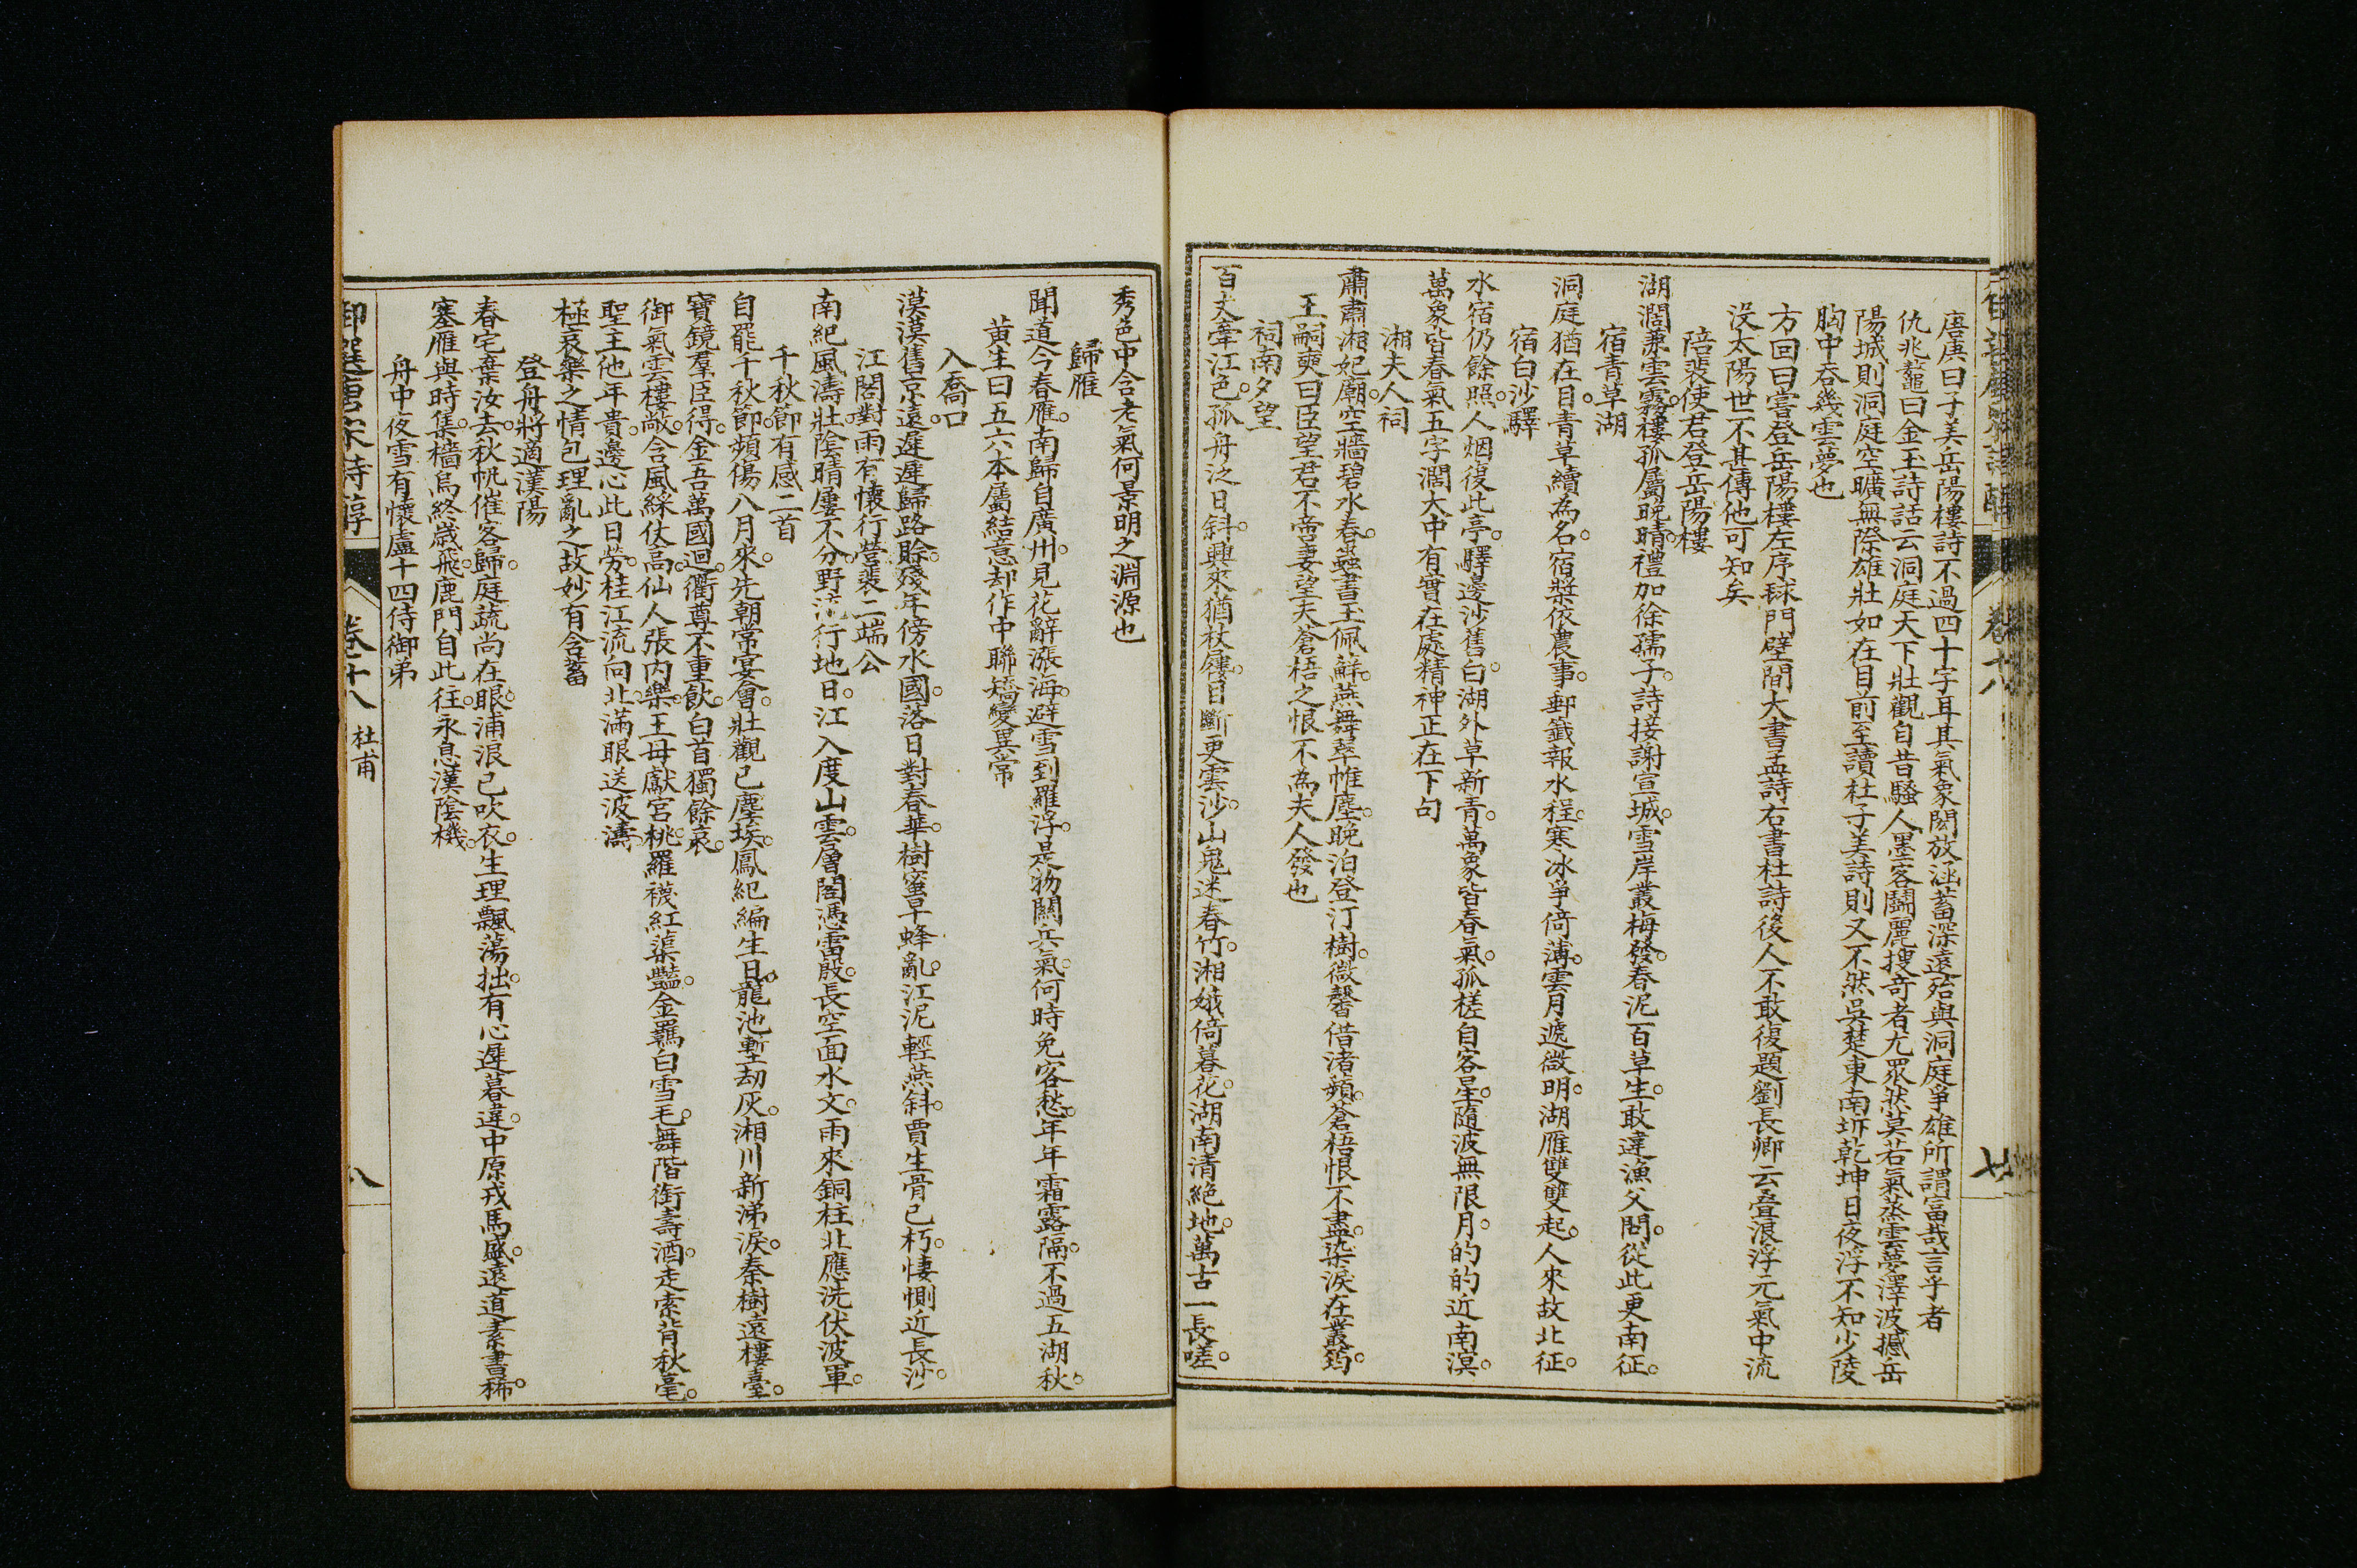 唐庚曰子美岳陽樓詩不過四十字耳其氣象閎放涵蓄深遠殆與洞庭爭雄所謂富哉言乎者
仇兆鼇曰金玉詩話云洞庭天下壯觀自昔騷人墨客鬭麗搜竒者尤眾然莫若氣蒸雲夢澤波撼岳
陽城則洞庭空曠無際雄壯如在目前至讀杜子美詩則又不然吳楚東南坼乾坤日夜浮不知少陵
胸中吞幾雲夢也
方回曰嘗登岳陽樓左序毬門壁間大書孟詩右書杜詩後人不敢復題劉長卿云疊浪浮元氣中流
沒太陽世不甚傳他可知矣
陪裴使君登岳陽樓
湖濶兼雲霧樓孤屬晚晴禮加徐孺子詩接謝宣城雪岸叢梅發春泥百草生敢違漁父問從此更南征
宿青草湖
洞庭猶在目青草續為名宿槳依農事郵籤報水程寒冰爭倚薄雲月遞微明湖雁雙雙起人來故北征
宿白沙驛
水宿仍餘照人烟復此亭驛邊沙舊白湖外草新青萬象皆春氣孤槎自客星隨波無限月的的近南溟
萬象皆春氣五字濶大中有實在處精神正在下句
湘夫人祠
肅肅湘妃廟空牆碧水春蟲書玉佩蘚燕舞翠帷塵晚泊登汀樹微馨借渚蘋蒼梧恨不盡染淚在叢筠
王嗣奭曰臣望君不啻妻望夫蒼梧之恨不為夫人發也
祠南夕望
百丈牽江色孤舟泛日斜興來猶杖屨目斷更雲沙山鬼迷春竹湘娥倚暮花湖南清絕地萬古一長嗟
秀邑中含老氣何景明之淵源也
歸雁
聞道今春雁南歸自廣州見花辭漲海避雪到羅浮是物關兵氣何時免客愁年年霜露隔不過五湖秋
黃生曰五六本屬結意却作中聯矯變異常
入喬口
漠漠舊京遠遲遲歸路賒殘年傍水國落日對春華樹蜜早蜂亂江泥輕燕斜賈生骨已朽悽惻近長沙
江閣對雨有懷行營裴二端公
南紀風濤壯陰晴屢不分野流行地日江入度山雲層閣憑雷殷長空面水文雨來銅柱北應洗伏波軍
千秋節有感二首
自罷千秋節頻傷八月來先朝常宴會壯觀已塵埃鳳紀編生日龍池塹劫灰湘川新涕淚秦樹遠樓臺
寶鏡羣臣得金吾萬國迴衢尊不重飲白首獨餘哀
御氣雲樓敞含風綵仗高仙人張內樂王母獻宮桃羅襪紅蕖豔金羈白雪毛舞階銜壽酒走索背秋毫
聖主他年貴邊心此日勞桂江流向北滿眼送波濤
極哀樂之情包理亂之故妙有含蓄
登舟將適漢陽
春宅棄汝去秋帆催客歸庭蔬尚在眼浦浪已吹衣生理飄蕩拙有心遲暮違中原戎馬盛遠道素書稀
塞雁與時集檣烏終歲飛鹿門自此往永息漢陰機
舟中夜雪有懷盧十四侍御弟
御選唐宋詩醇
卷十八 杜甫
八